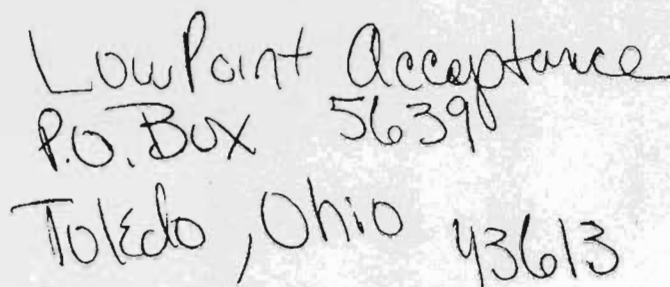 LowPoint Acceptance
P.O. Box 5639
Toledo, Ohio 43613